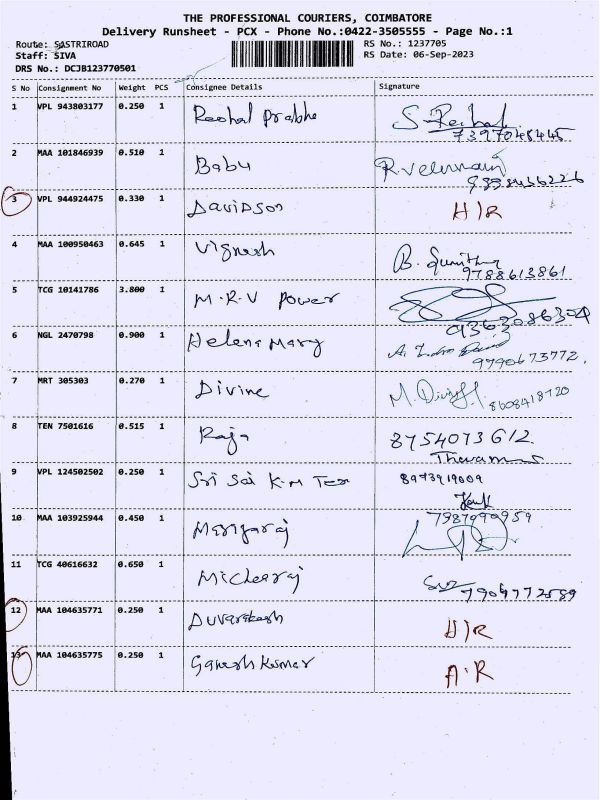 THE PROFESSIONAL COURIERS, COIMBATORE
Delivery Runsheet - PCX - Phone No.:0422-3505555 - Page No.:1
Route: SASTRIROAD
RS No.: 1237705
Staff: SIVA
RS Date: 06-Sep-2023
DRS No.: DCJB123770501
S No Consignment No Weight PCS Consignee Details Signature
1 VPL 943803177 0.250 1 Reshal Prabha
7397048445
2 MAA 101846939 0.510 1 Babu
3 VPL 944924475 0.330 1 Davidson H)R
4 MAA 100950463 0.645 1 Vignesh B.
9788613861
5 TCG 10141786 3.800 1 M.R.V Power
9363086304
6 NGL 2470798 0.900 1 Helena Mary
9790673772.
7 MRT 305303 0.270 1 Divine M.
8608418720
8 TEN 7501616 0.515 1 Raja 8754073612
9 VPL 124502502 0.250 1 Sri Sai K.M Tex 8973919009
10 MAA 103925944 0.450 1 7987999959
11 TCG 40616632 0.650 1 Michearaj
7904772589
12 MAA 104635771 0.250 1 H)R
13 MAA 104635775 0.250 1 Ganesh Kumar A.R